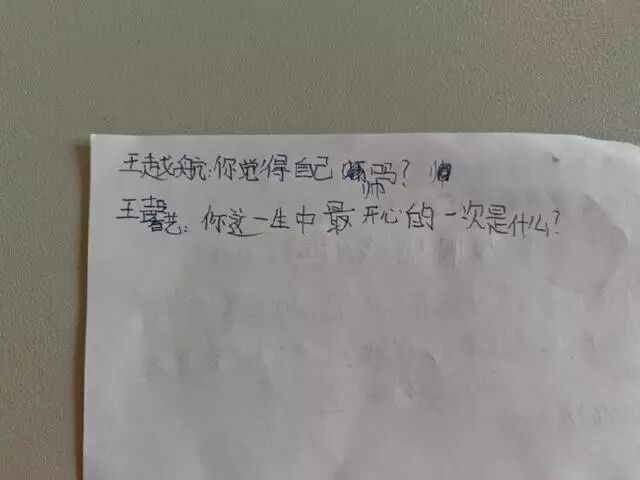 王越航:你觉得自己帅吗?
王馨艺:你这一生中最开心的一次是什么?